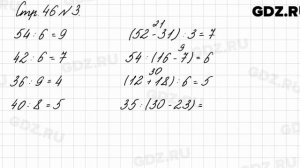 GDZ.RU
Стр. 46 №3.
54 : 6 = 9
42 : 6 = 7
36 : 9 = 4
40 : 8 = 5
21
(52 - 31) : 3 = 7
9
54 : (16 - 7) = 6
30
(12 + 18) : 6 = 5
35 : (30 - 23) =
GDZ.RU